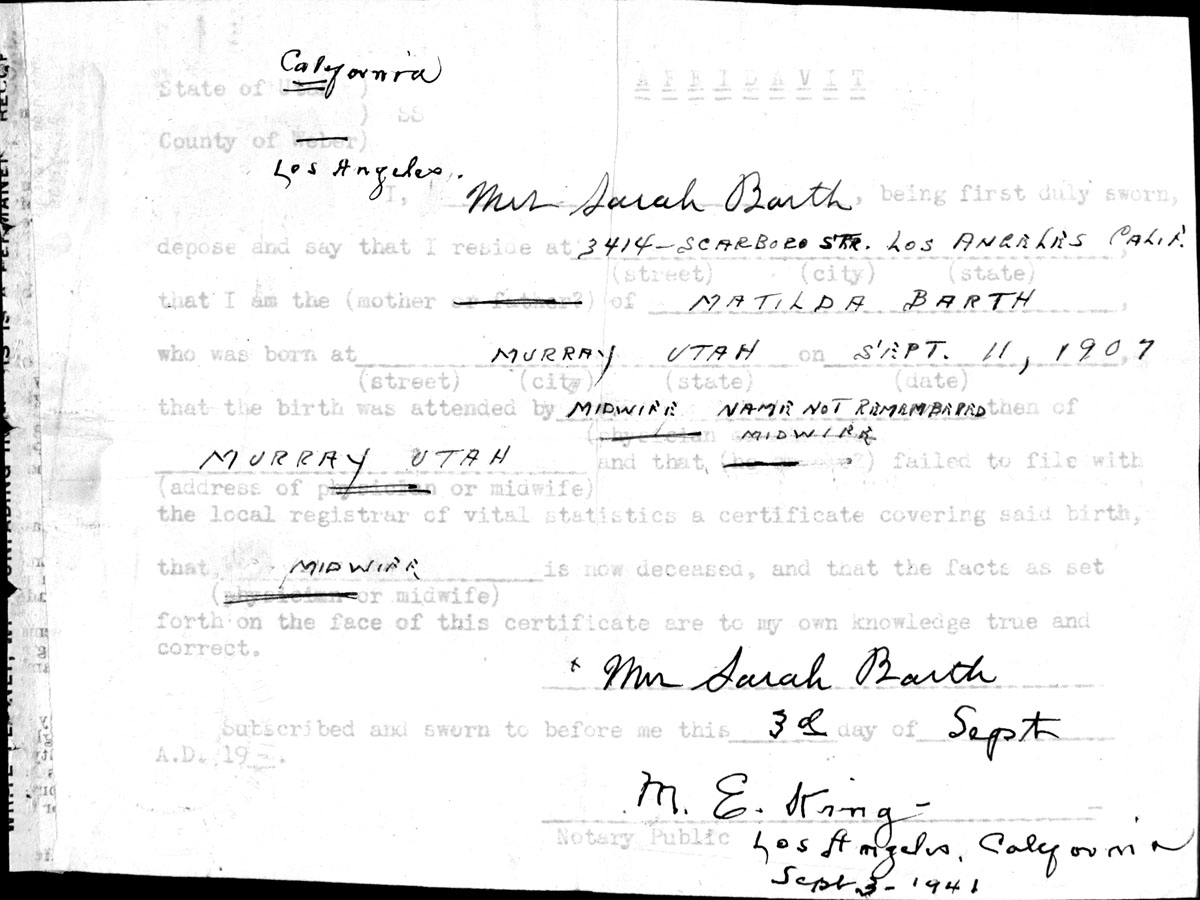 California
State of Utah )
AFFIDAVIT
) SS
County of Weber)
Los Angeles.
I, Mrs Sarah Barth, being first duly sworn,
depose and say that I reside at 3414-SCARBORO STR. LOS ANGELES CALIF.,
(street) (city) (state)
that I am the (mother or father?) of MATILDA BARTH,
who was born at MURRAY UTAH on SEPT. 11, 1907,
(street) (city) (state) (date)
that the birth was attended by MIDWIFE NAME NOT REMEMBERED then of
(physician MIDWIFE
MURRAY UTAH and that (he ?) failed to file with
(address of physician or midwife)
the local registrar of vital statistics a certificate covering said birth,
that MIDWIFE is now deceased, and that the facts as set
(physician or midwife)
forth on the face of this certificate are to my own knowledge true and
correct.
x Mrs Sarah Barth
Subscribed and sworn to before me this 3d day of Sept
A.D. 19 .
M. E. King-
Notary Public Los Angeles, California
Sept 3-1941